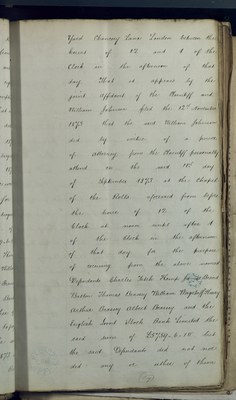 Yard Chancery Lane London between the
hours of 12 and 1 of the
Clock in the afternoon of that
day That it appears by the
joint affidavit of the Plaintiff and
William Johnson filed the 12th November
1875 that the said William Johnson
did by virtue of a power
of attorney from the Plaintiff personally
attend on the said 11th day
of September 1875 at the Chapel
of the Rolls aforesaid from before
the hour of 12 of the
Clock at noon until after 1
of the Clock in the afternoon
of that day for the purpose
of receiving from the above named
Defendants Charles Kemp
Thomas William
Arthur Albert and the
English Joint Stock Bank Limited the
said sum of
the said Defendants did not nor
did any or either of them